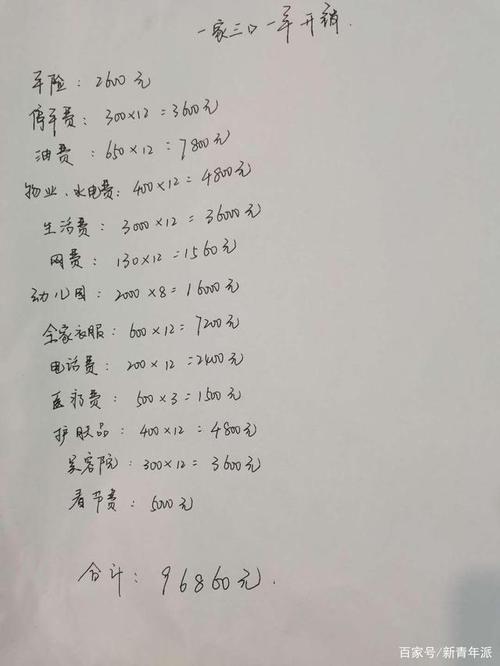 一家三口一年开销.
车险: 2600元
停车费: 300×12=3600元
油费: 650×12=7800元
物业、水电费: 400×12=4800元
生活费: 3000×12=36000元
网费: 130×12=1560元
幼儿园: 2000×8=16000元
全家衣服: 600×12=7200元
电话费: 200×12=2400元
医药费: 500×3=1500元
护肤品: 400×12=4800元
美容院: 300×12=3600元
看节费: 5000元
合计: 96860元.
百家号/新青年派